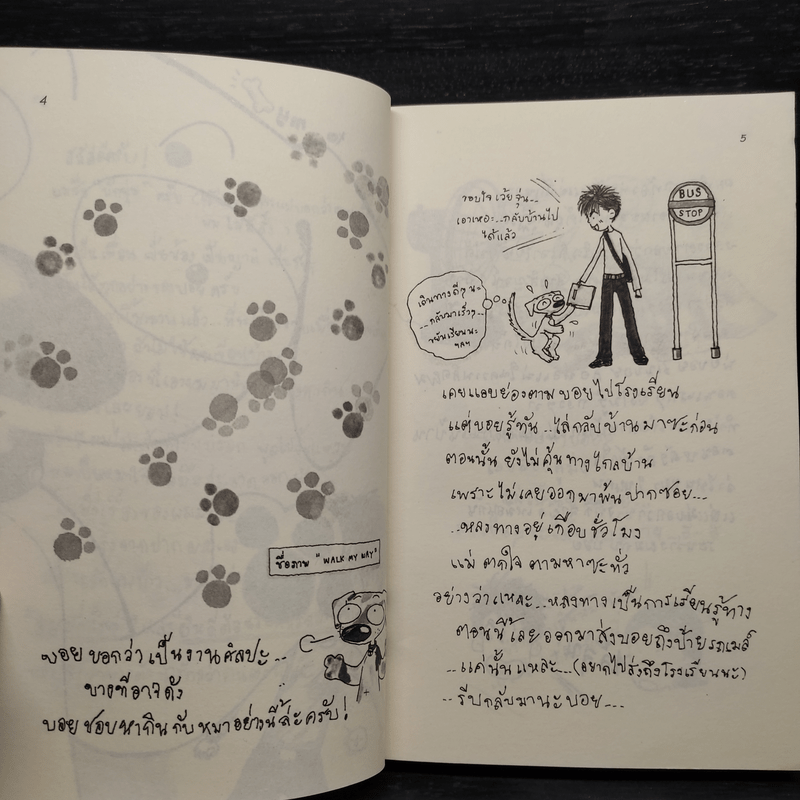 4
ชื่อภาพ "WALK MY WAY"
บอย บอกว่า เป็นงานศิลปะ...
บางทีอาจดัง
บอย ชอบหากินกับหมาอย่างนี้ล่ะครับ!
5
ขอบใจเว้ยจุ่น...
เอาเหอะ...กลับบ้านไป
ได้แล้ว
BUS
STOP
เดินทางดีๆ นะ
...กลับมาเร็วๆ...
ขยันเรียนนะ
ฯลฯ
เคยแอบย่องตามบอยไปโรงเรียน
แต่บอยรู้ทัน...ไล่กลับบ้านมาซะก่อน
ตอนนั้น ยังไม่คุ้นทางไกลบ้าน
เพราะไม่เคยออกมาพ้นปากซอย...
...หลงทางอยู่เกือบชั่วโมง
แม่ ตกใจ ตามหาซะทั่ว
อย่างว่าแหละ...หลงทางเป็นการเรียนรู้ทาง
ตอนนี้เลยออกมาส่งบอยถึงป้ายรถเมล์
...แค่นั้นแหละ...(อยากไปส่งถึงโรงเรียนนะ)
...รีบกลับมานะบอย...